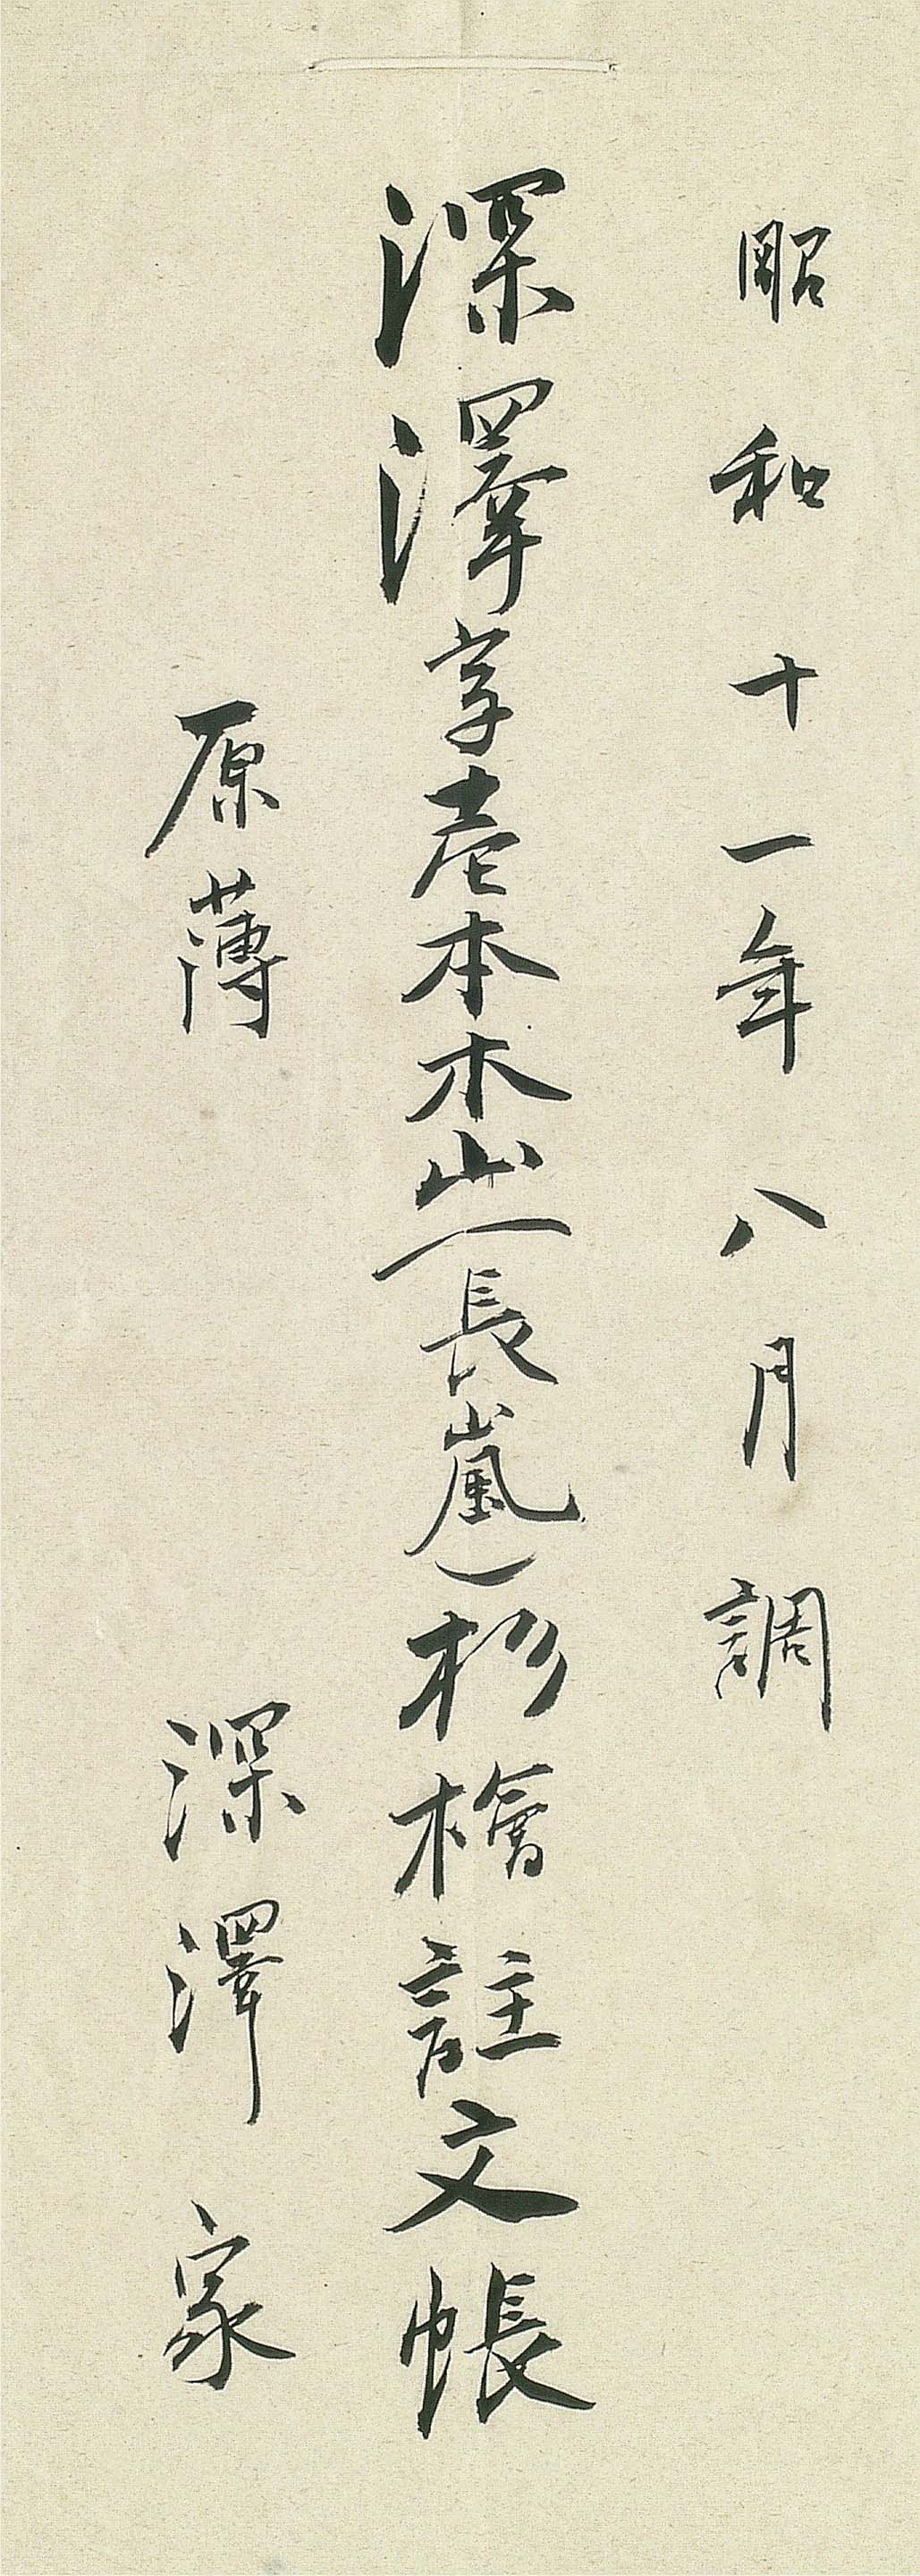 昭和十一年八月調
深澤字壱本木山(長嵐)杉檜註文帳
原薄 深澤家